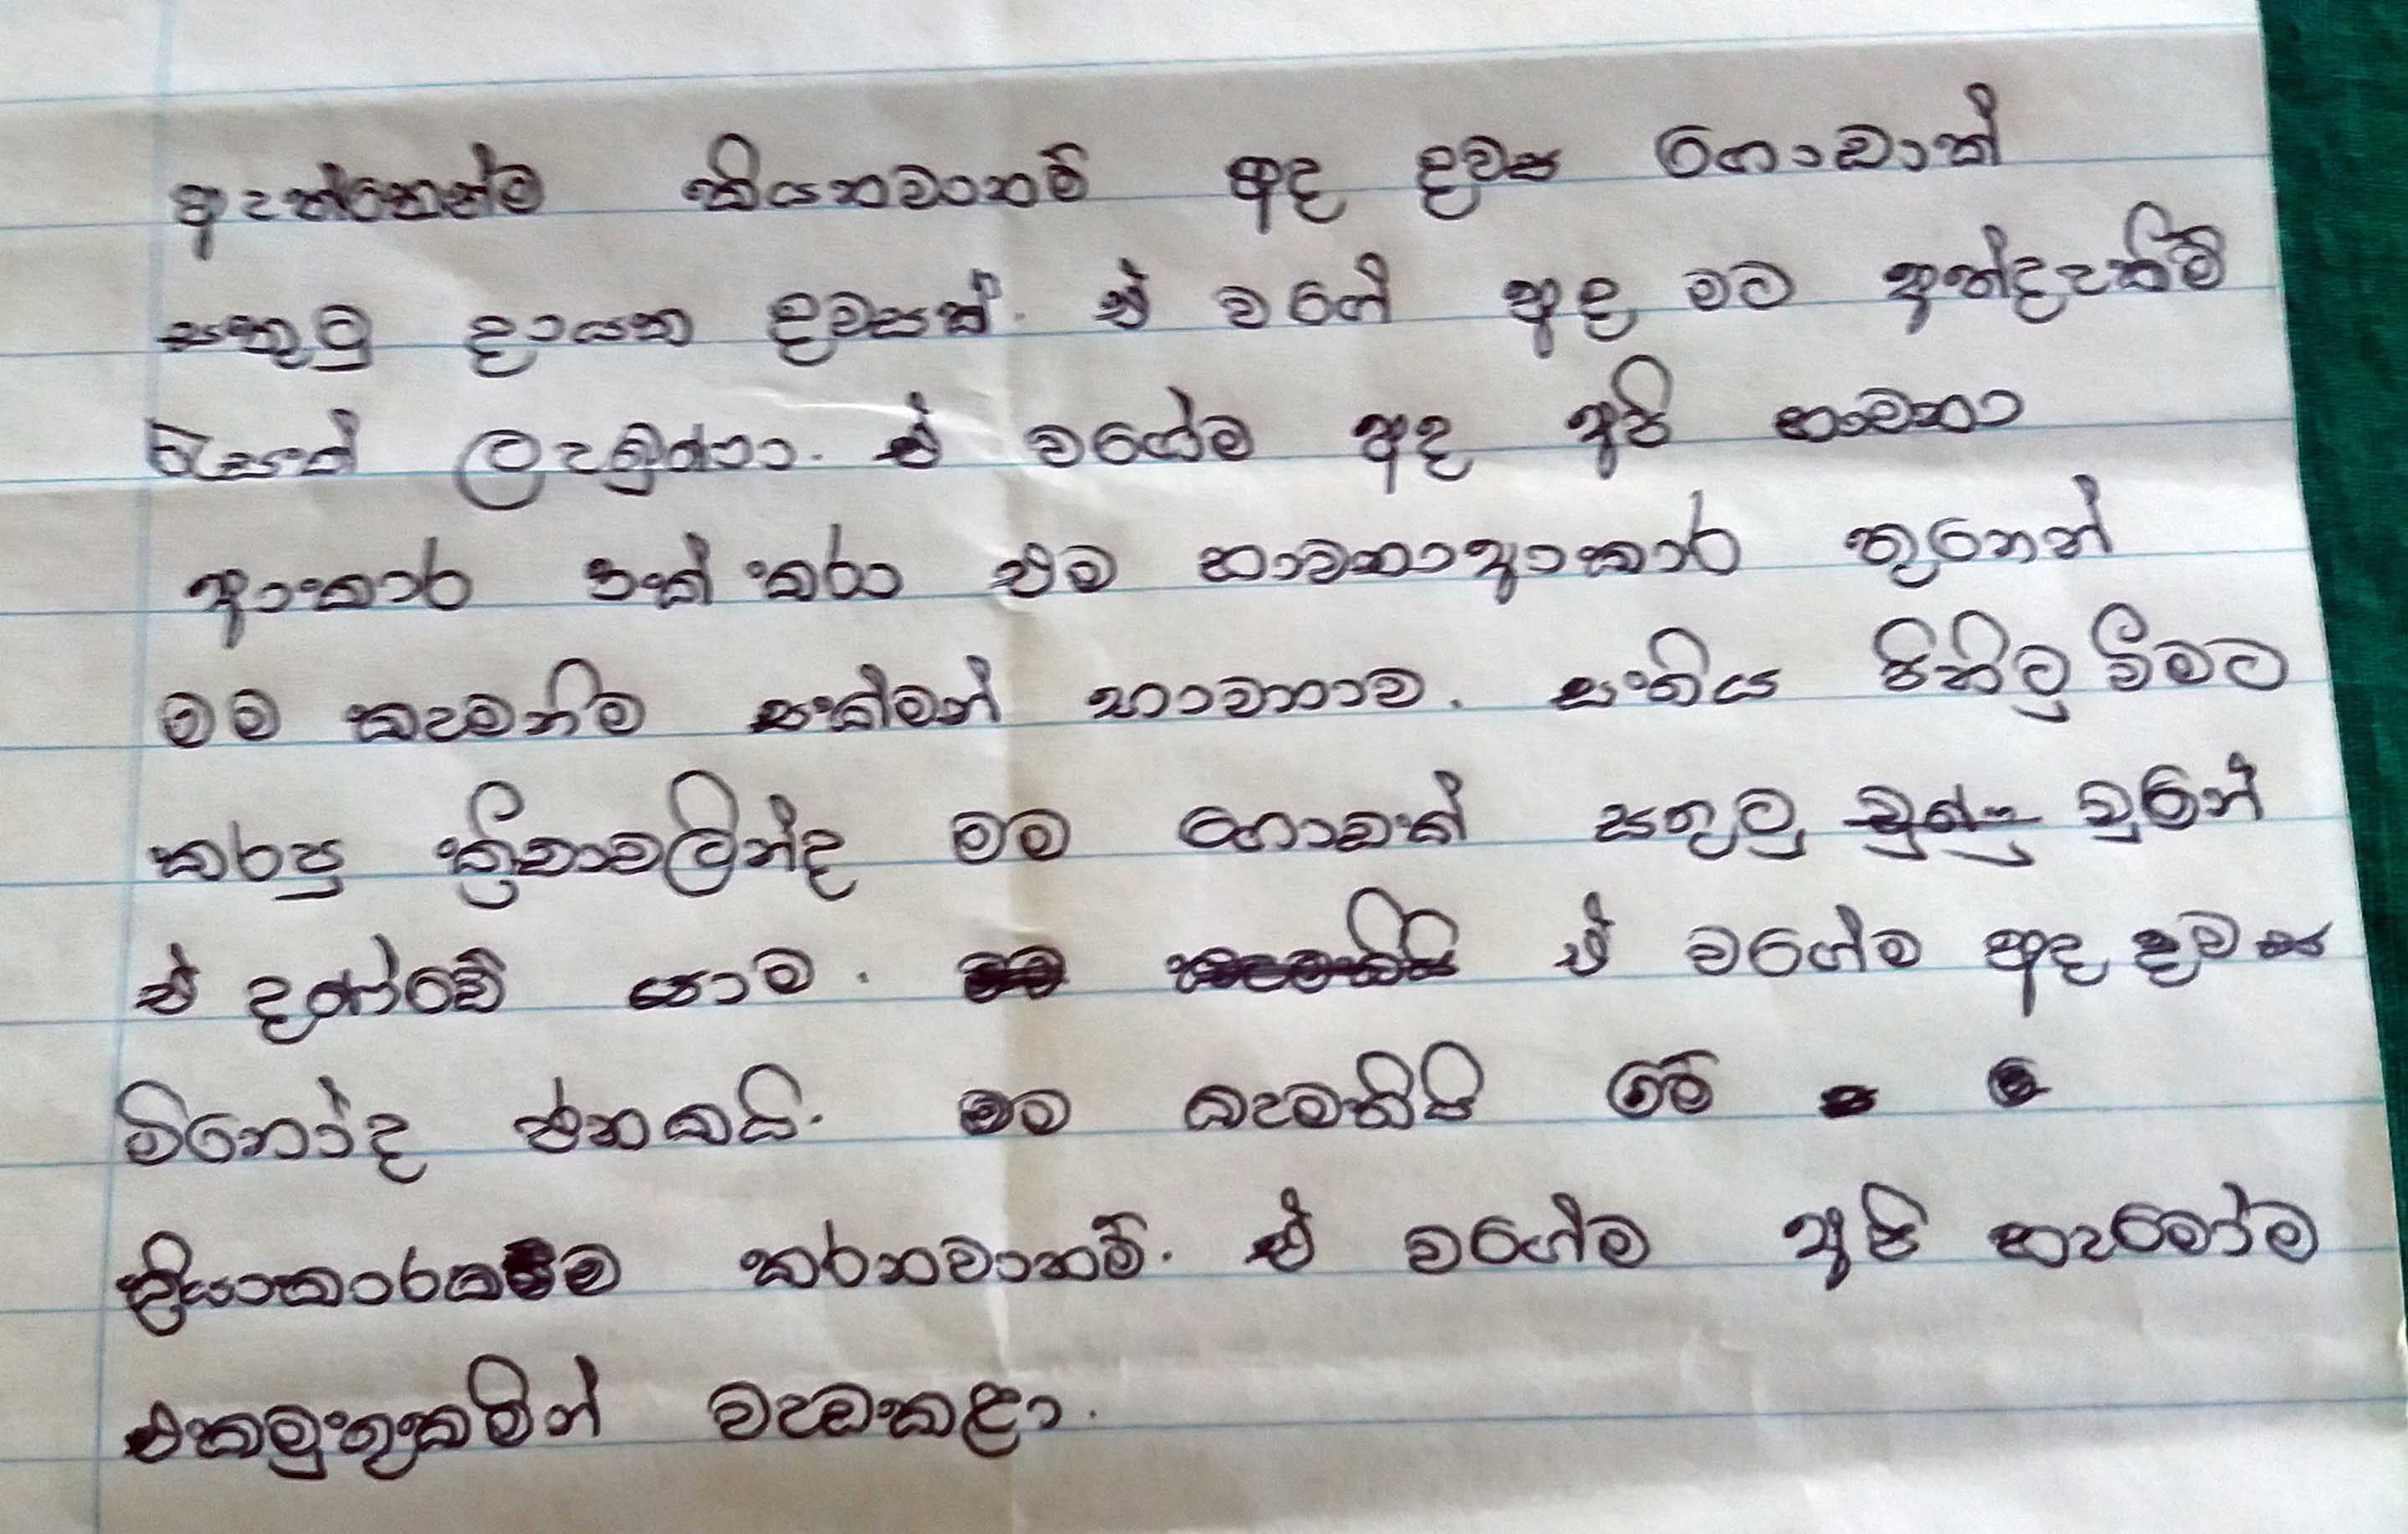 ඇත්තෙන්ම කියනවානම් අද දවස ගොඩාක්
සතුටු දායක දවසක්. ඒ වගේ අද මට අත්දැකීම්
රැසක් ලැබුණා. ඒ වගේම අද අපි භාවනා
ආකාර 3ක් කරා එම භාවනාආකාර තුනෙන්
මම කැමතිම සක්මන් භාවනාව. සතිය පිහිටු වීමට
කරපු ක්‍රීඩාවලින්ද මම ගොඩක් සතුටු වුනේ
ඒ දණ්ඩේ යාම. ඒ වගේම අද දවස
විනෝද එකකයි. මම කැමතියි මේ
ක්‍රියාකාරකම කරනවානම්. ඒ වගේම අපි හැමෝම
එකමුතුකමින් වැඩකළා.